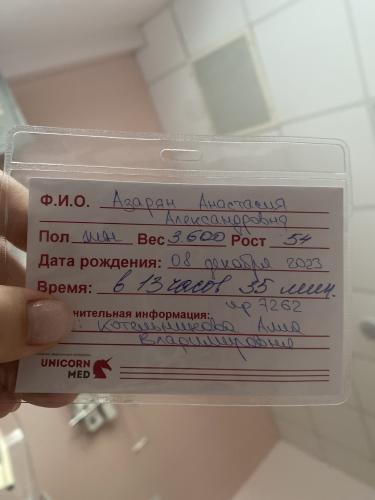 Ф.И.О. Азарян Анастасия
Александровна
Пол Вес 3.600 Рост 54
Дата рождения: 08 декабря 2023
Время: в 13 часов 35 мин.
нительная информация: 7262
: Котельникова Алла
Владимировна
UNICORN
MED